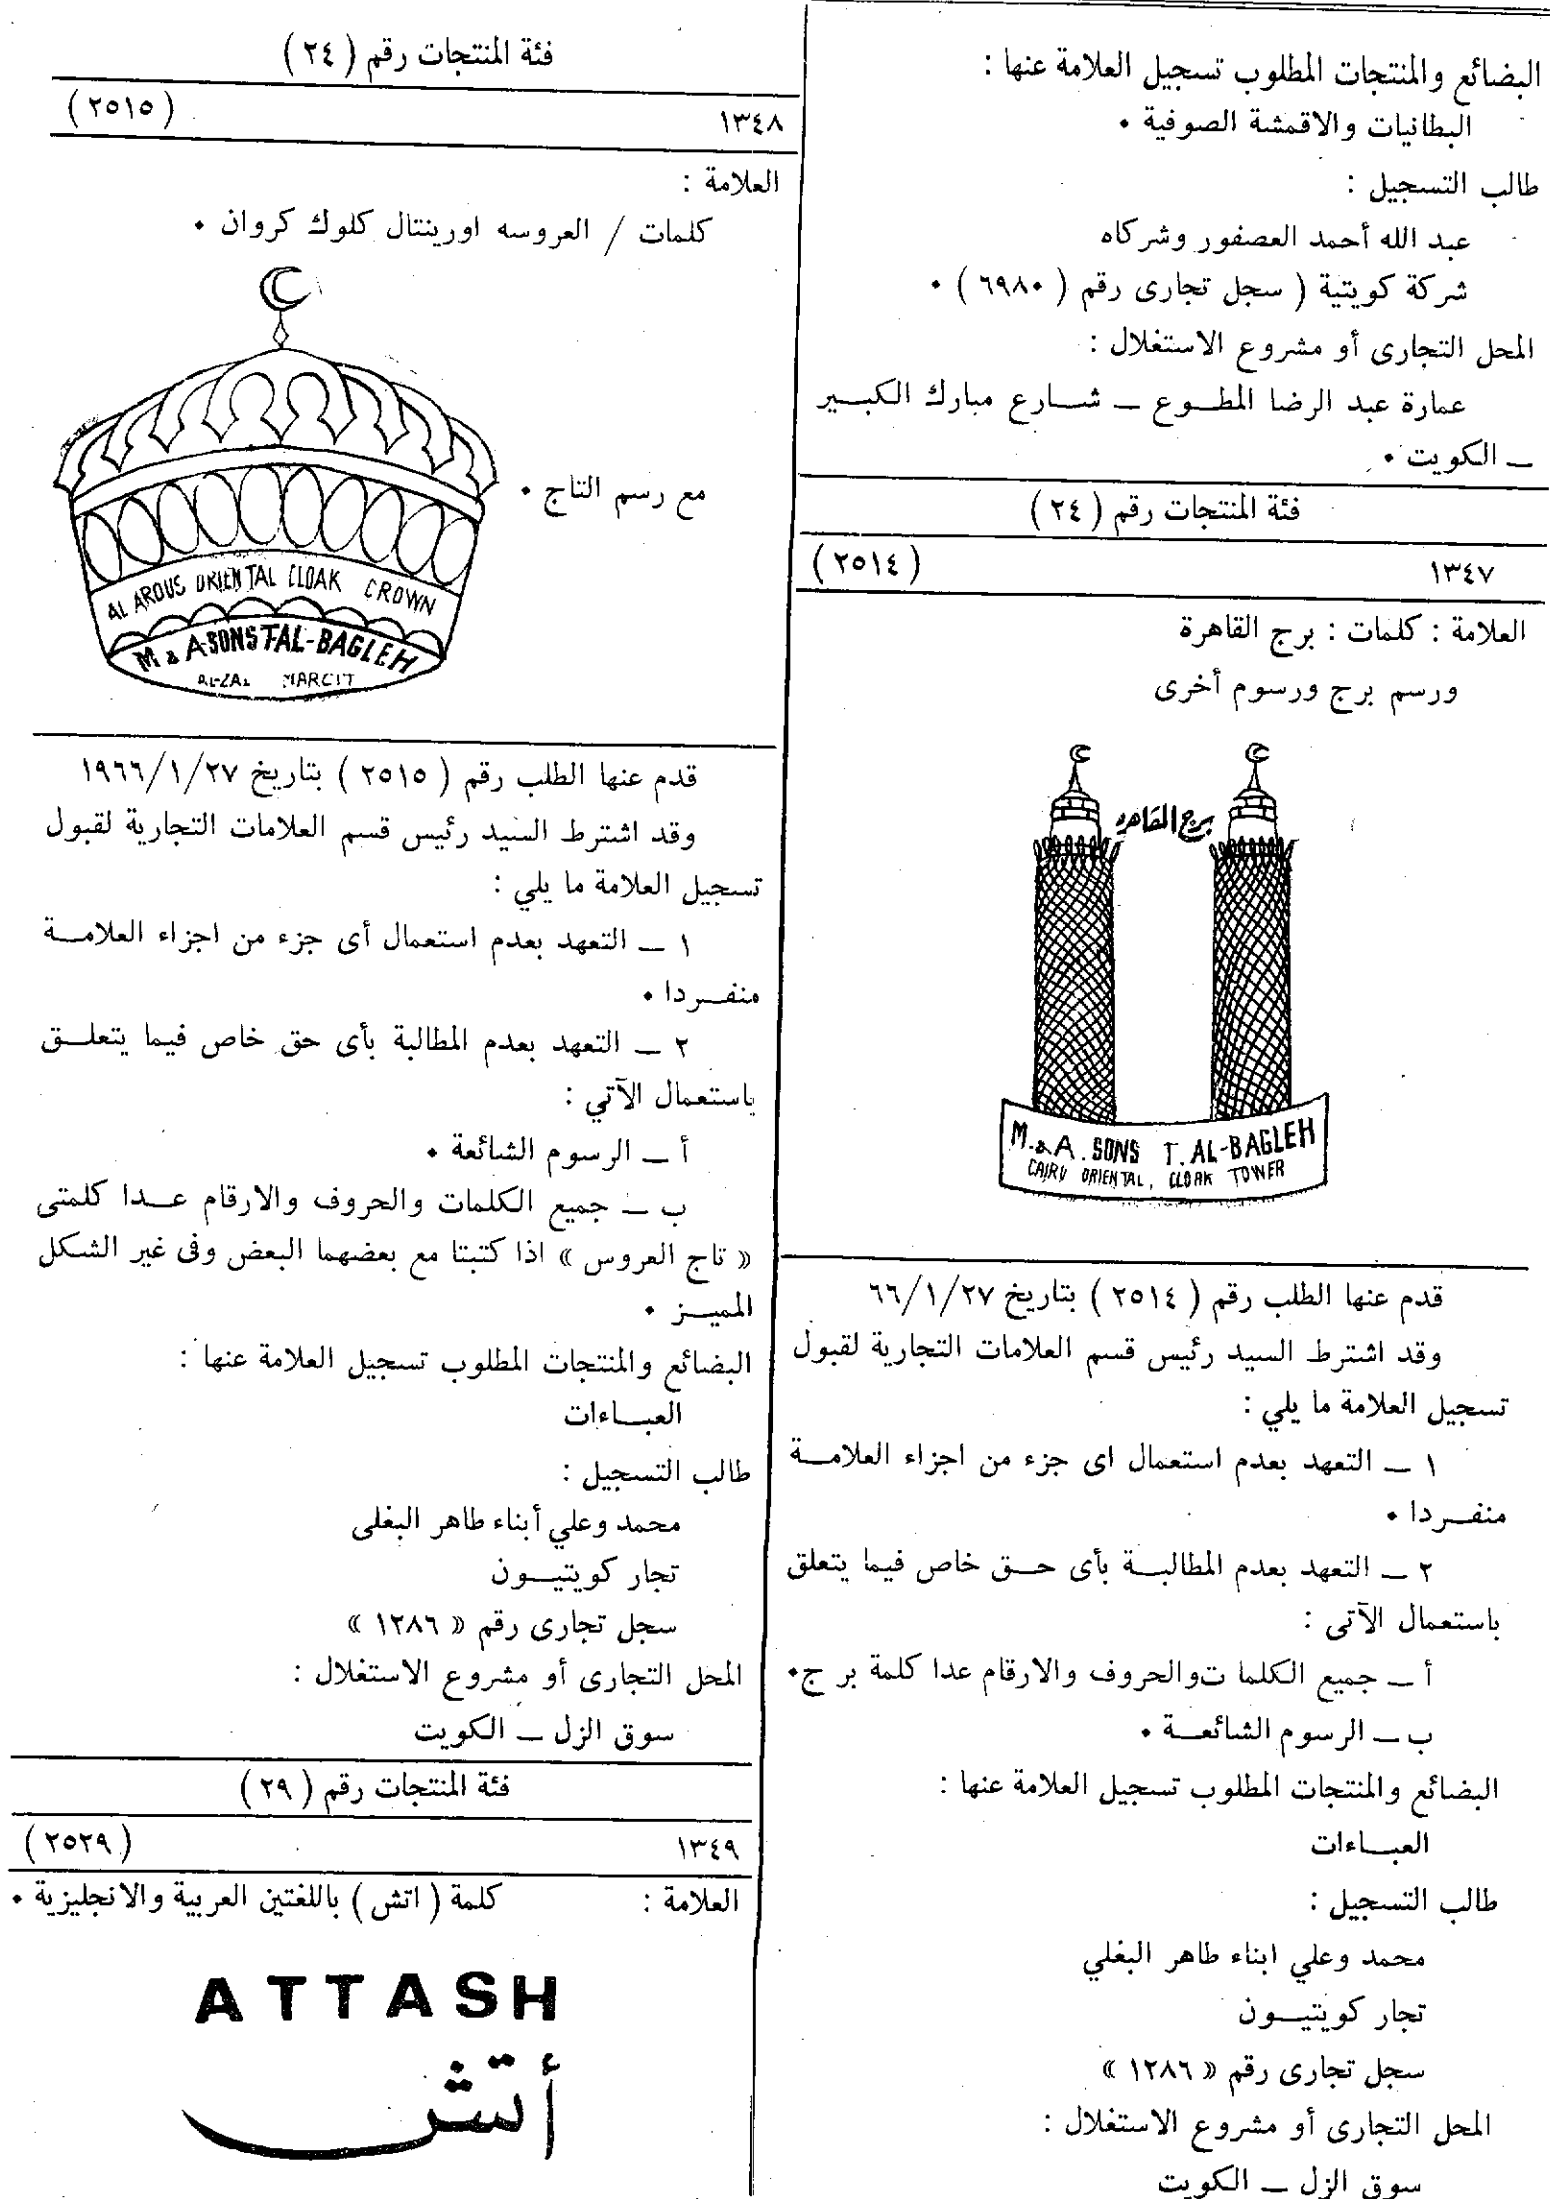 البضائع والمنتجات المطلوب تسجيل العلامة عنها :
البطانيات والاقمشة الصوفية .
طالب التسجيل :
عبد الله أحمد العصفور وشركاه
شركة كويتية ( سجل تجارى رقم ( ٦٩٨٠ ) .
المحل التجارى أو مشروع الاستغلال :
عمارة عبد الرضا المطوع ــ شارع مبارك الكبير
ــ الكويت .
فئة المنتجات رقم ( ٢٤ )
١٣٤٧ ( ٢٥١٤ )
العلامة : كلمات : برج القاهرة
ورسم برج ورسوم أخرى
برج القاهره
M. & A. SONS T. AL-BAGLEH
CAIRO ORIENTAL, CLOAK TOWER
قدم عنها الطلب رقم ( ٢٥١٤ ) بتاريخ ٦٦/١/٢٧
وقد اشترط السيد رئيس قسم العلامات التجارية لقبول
تسجيل العلامة ما يلي :
١ ــ التعهد بعدم استعمال اى جزء من اجزاء العلامة
منفردا .
٢ ــ التعهد بعدم المطالبة بأى حق خاص فيما يتعلق
باستعمال الآتى :
أ ــ جميع الكلما توالحروف والارقام عدا كلمة بر ج.
ب ــ الرسوم الشائعة .
البضائع والمنتجات المطلوب تسجيل العلامة عنها :
العباءات
طالب التسجيل :
محمد وعلي ابناء طاهر البغلي
تجار كويتيون
سجل تجارى رقم « ١٢٨٦ »
المحل التجارى أو مشروع الاستغلال :
سوق الزل ــ الكويت
فئة المنتجات رقم ( ٢٤ )
١٣٤٨ ( ٢٥١٥ )
العلامة :
كلمات / العروسه اورينتال كلوك كروان .
مع رسم التاج .
AL AROUS ORIENTAL CLOAK CROWN
M & A-SONS T-AL-BAGLEH
AL-ZAL MARCIT
قدم عنها الطلب رقم ( ٢٥١٥ ) بتاريخ ١٩٦٦/١/٢٧
وقد اشترط السيد رئيس قسم العلامات التجارية لقبول
تسجيل العلامة ما يلي :
١ ــ التعهد بعدم استعمال أى جزء من اجزاء العلامة
منفردا .
٢ ــ التعهد بعدم المطالبة بأى حق خاص فيما يتعلق
باستعمال الآتي :
أ ــ الرسوم الشائعة .
ب ــ جميع الكلمات والحروف والارقام عدا كلمتى
« تاج العروس » اذا كتبتا مع بعضهما البعض وفى غير الشكل
المميز .
البضائع والمنتجات المطلوب تسجيل العلامة عنها :
العباءات
طالب التسجيل :
محمد وعلي أبناء طاهر البغلى
تجار كويتيون
سجل تجارى رقم « ١٢٨٦ »
المحل التجارى أو مشروع الاستغلال :
سوق الزل ــ الكويت
فئة المنتجات رقم ( ٢٩ )
١٣٤٩ ( ٢٥٢٩ )
العلامة : كلمة ( اتش ) باللغتين العربية والانجليزية .
ATTASH
أتش